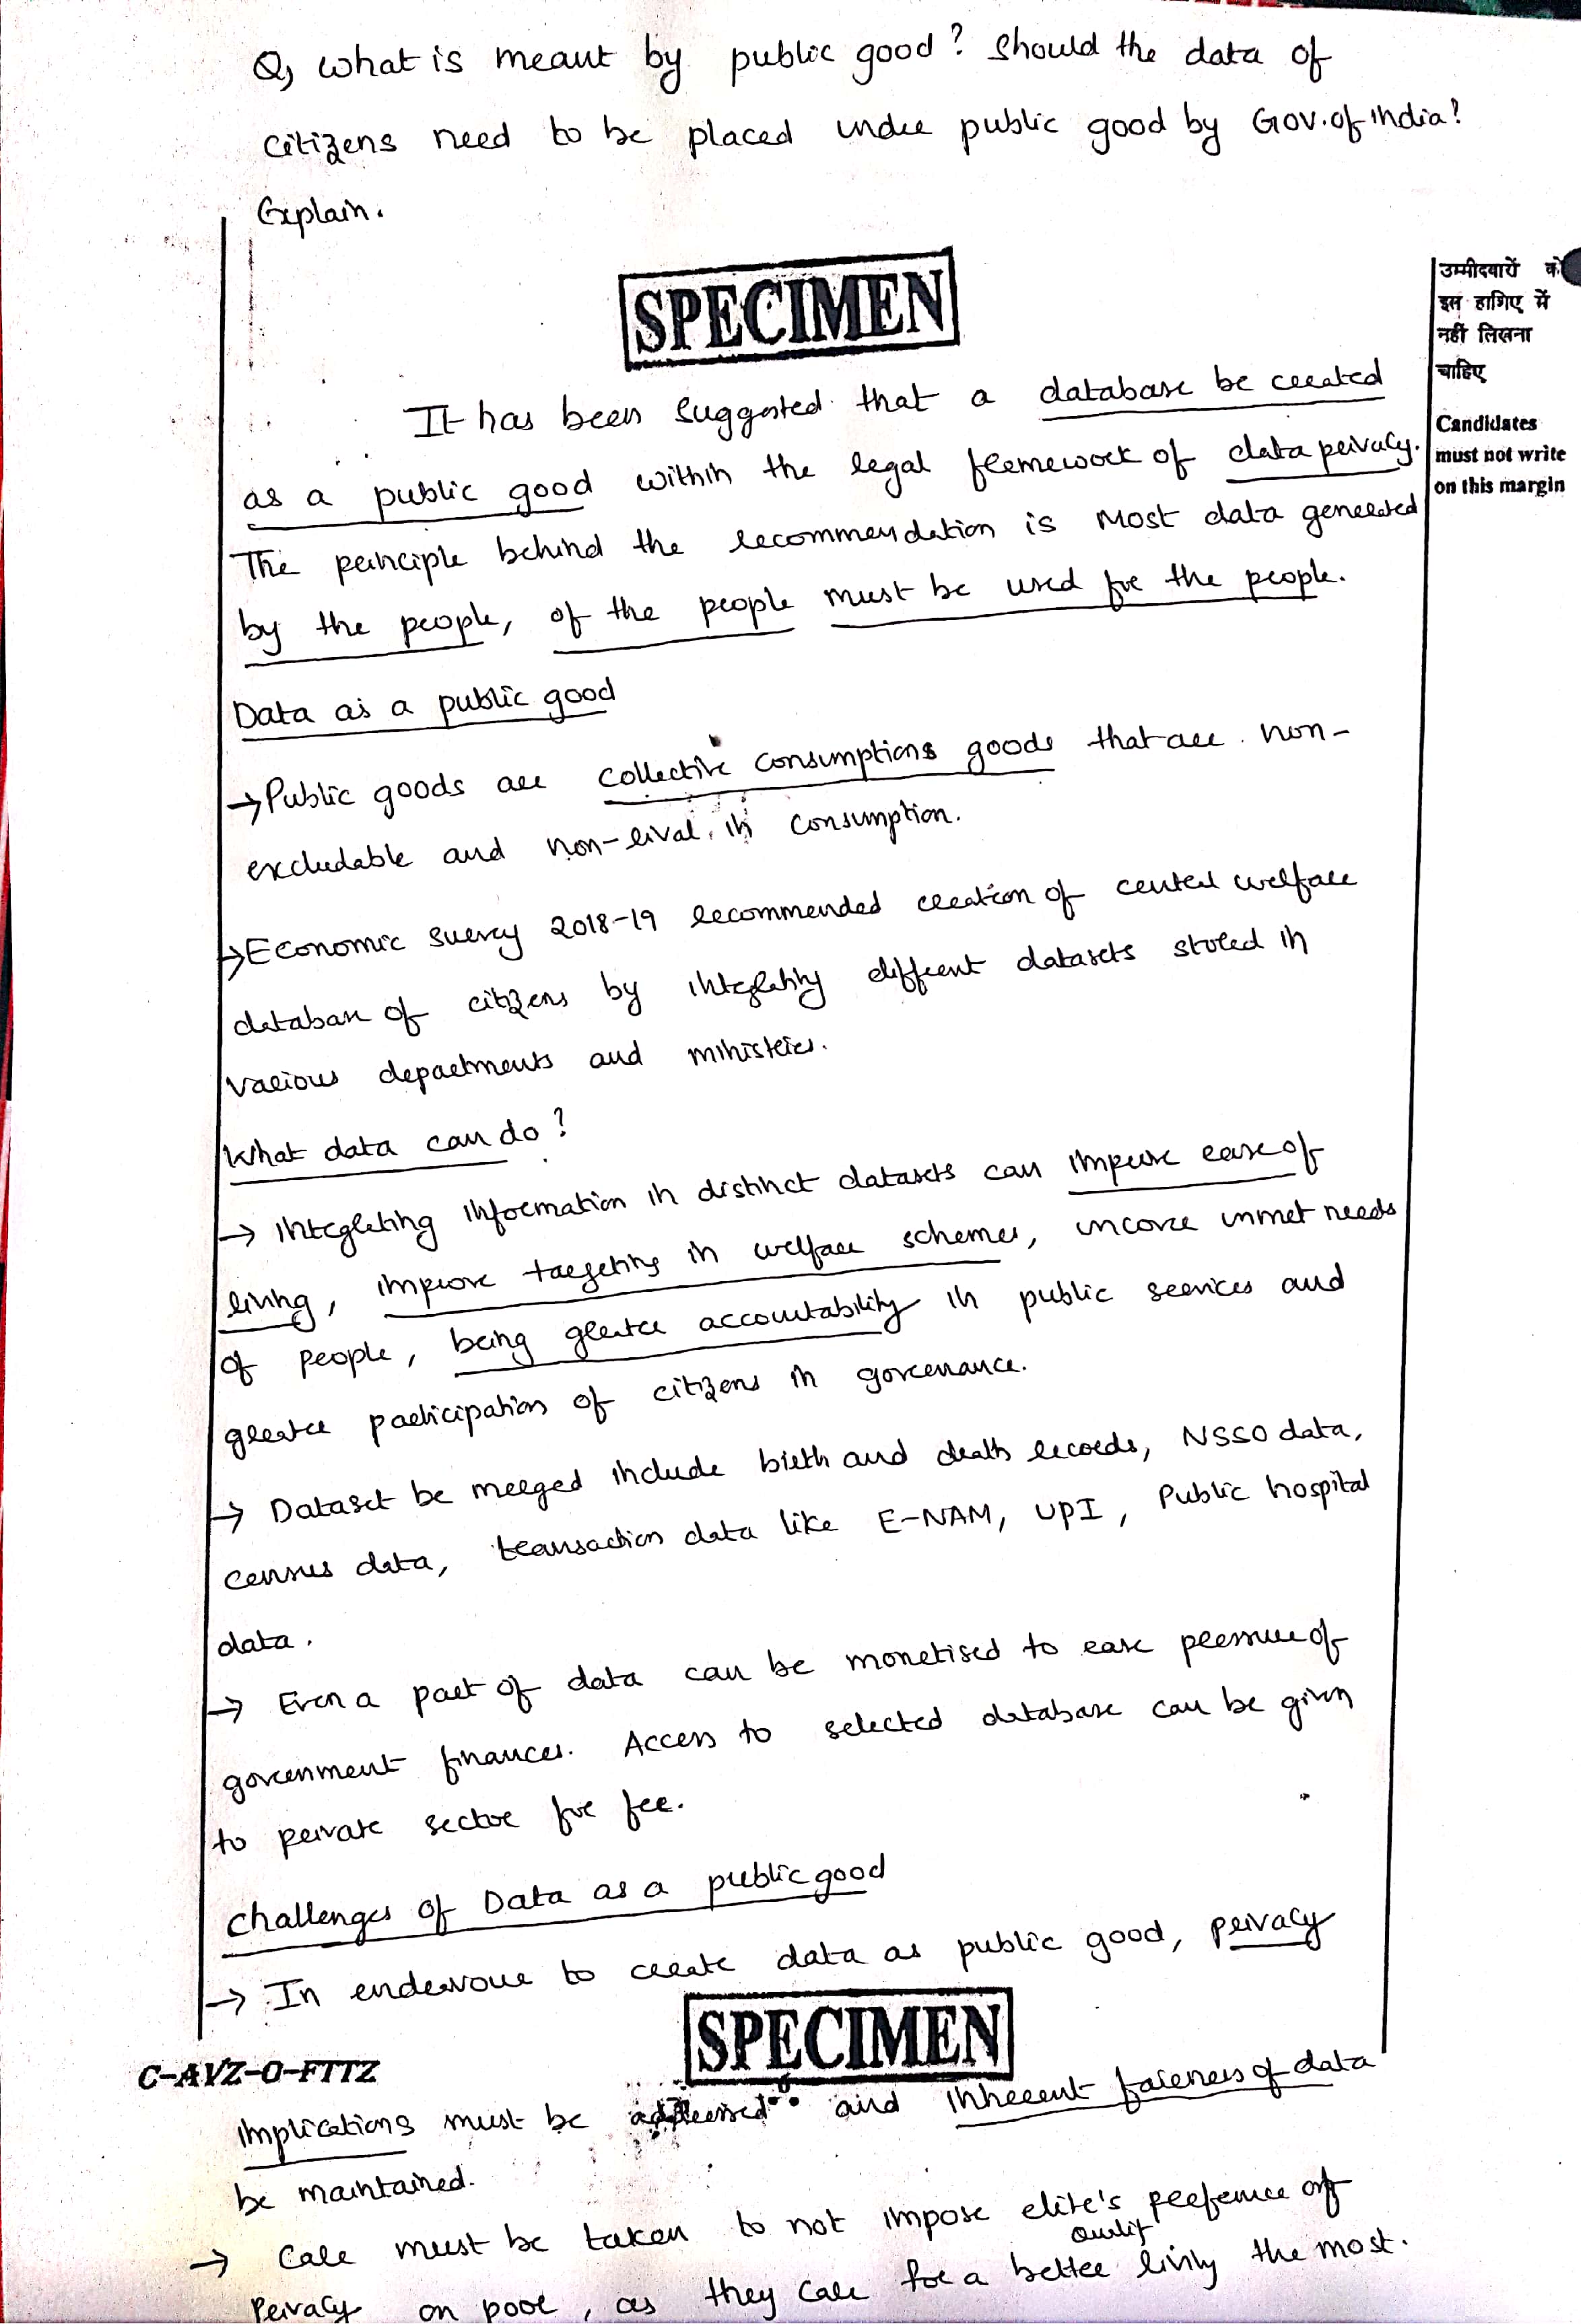 Q, What is meant by public good? Should the data of
citizens need to be placed under public good by Gov. of India?
Explain.
SPECIMEN
उम्मीदवारों को
इस हाशिए में
नहीं लिखना
चाहिए
Candidates
must not write
on this margin
It has been suggested that a database be created
as a public good within the legal framework of data privacy.
The principle behind the recommendation is Most data generated
by the people, of the people must be used for the people.
Data as a public good
→ Public goods are collective consumptions goods that are non-
excludable and non-rival in consumption.
→ Economic survey 2018-19 recommended creation of central welfare
database of citizens by integrating different datasets stored in
various departments and ministries.
What data can do?
→ Integrating information in distinct datasets can improve ease of
living, improve targeting in welfare schemes, uncover unmet needs
of people, bring greater accountability in public services and
greater participation of citizens in governance.
→ Dataset be merged include birth and death records, NSSO data,
census data, transaction data like E-NAM, UPI, Public hospital
data.
→ Even a part of data can be monetised to ease pressure of
government finances. Access to selected database can be given
to private sector for fee.
Challenges of Data as a public good
→ In endeavour to create data as public good, privacy
SPECIMEN
C-AVZ-O-FTTZ
implications must be addressed and inherent fairness of data
be maintained.
→ Care must be taken to not impose elite's preference of
privacy on poor, as they care for a better quality living the most.